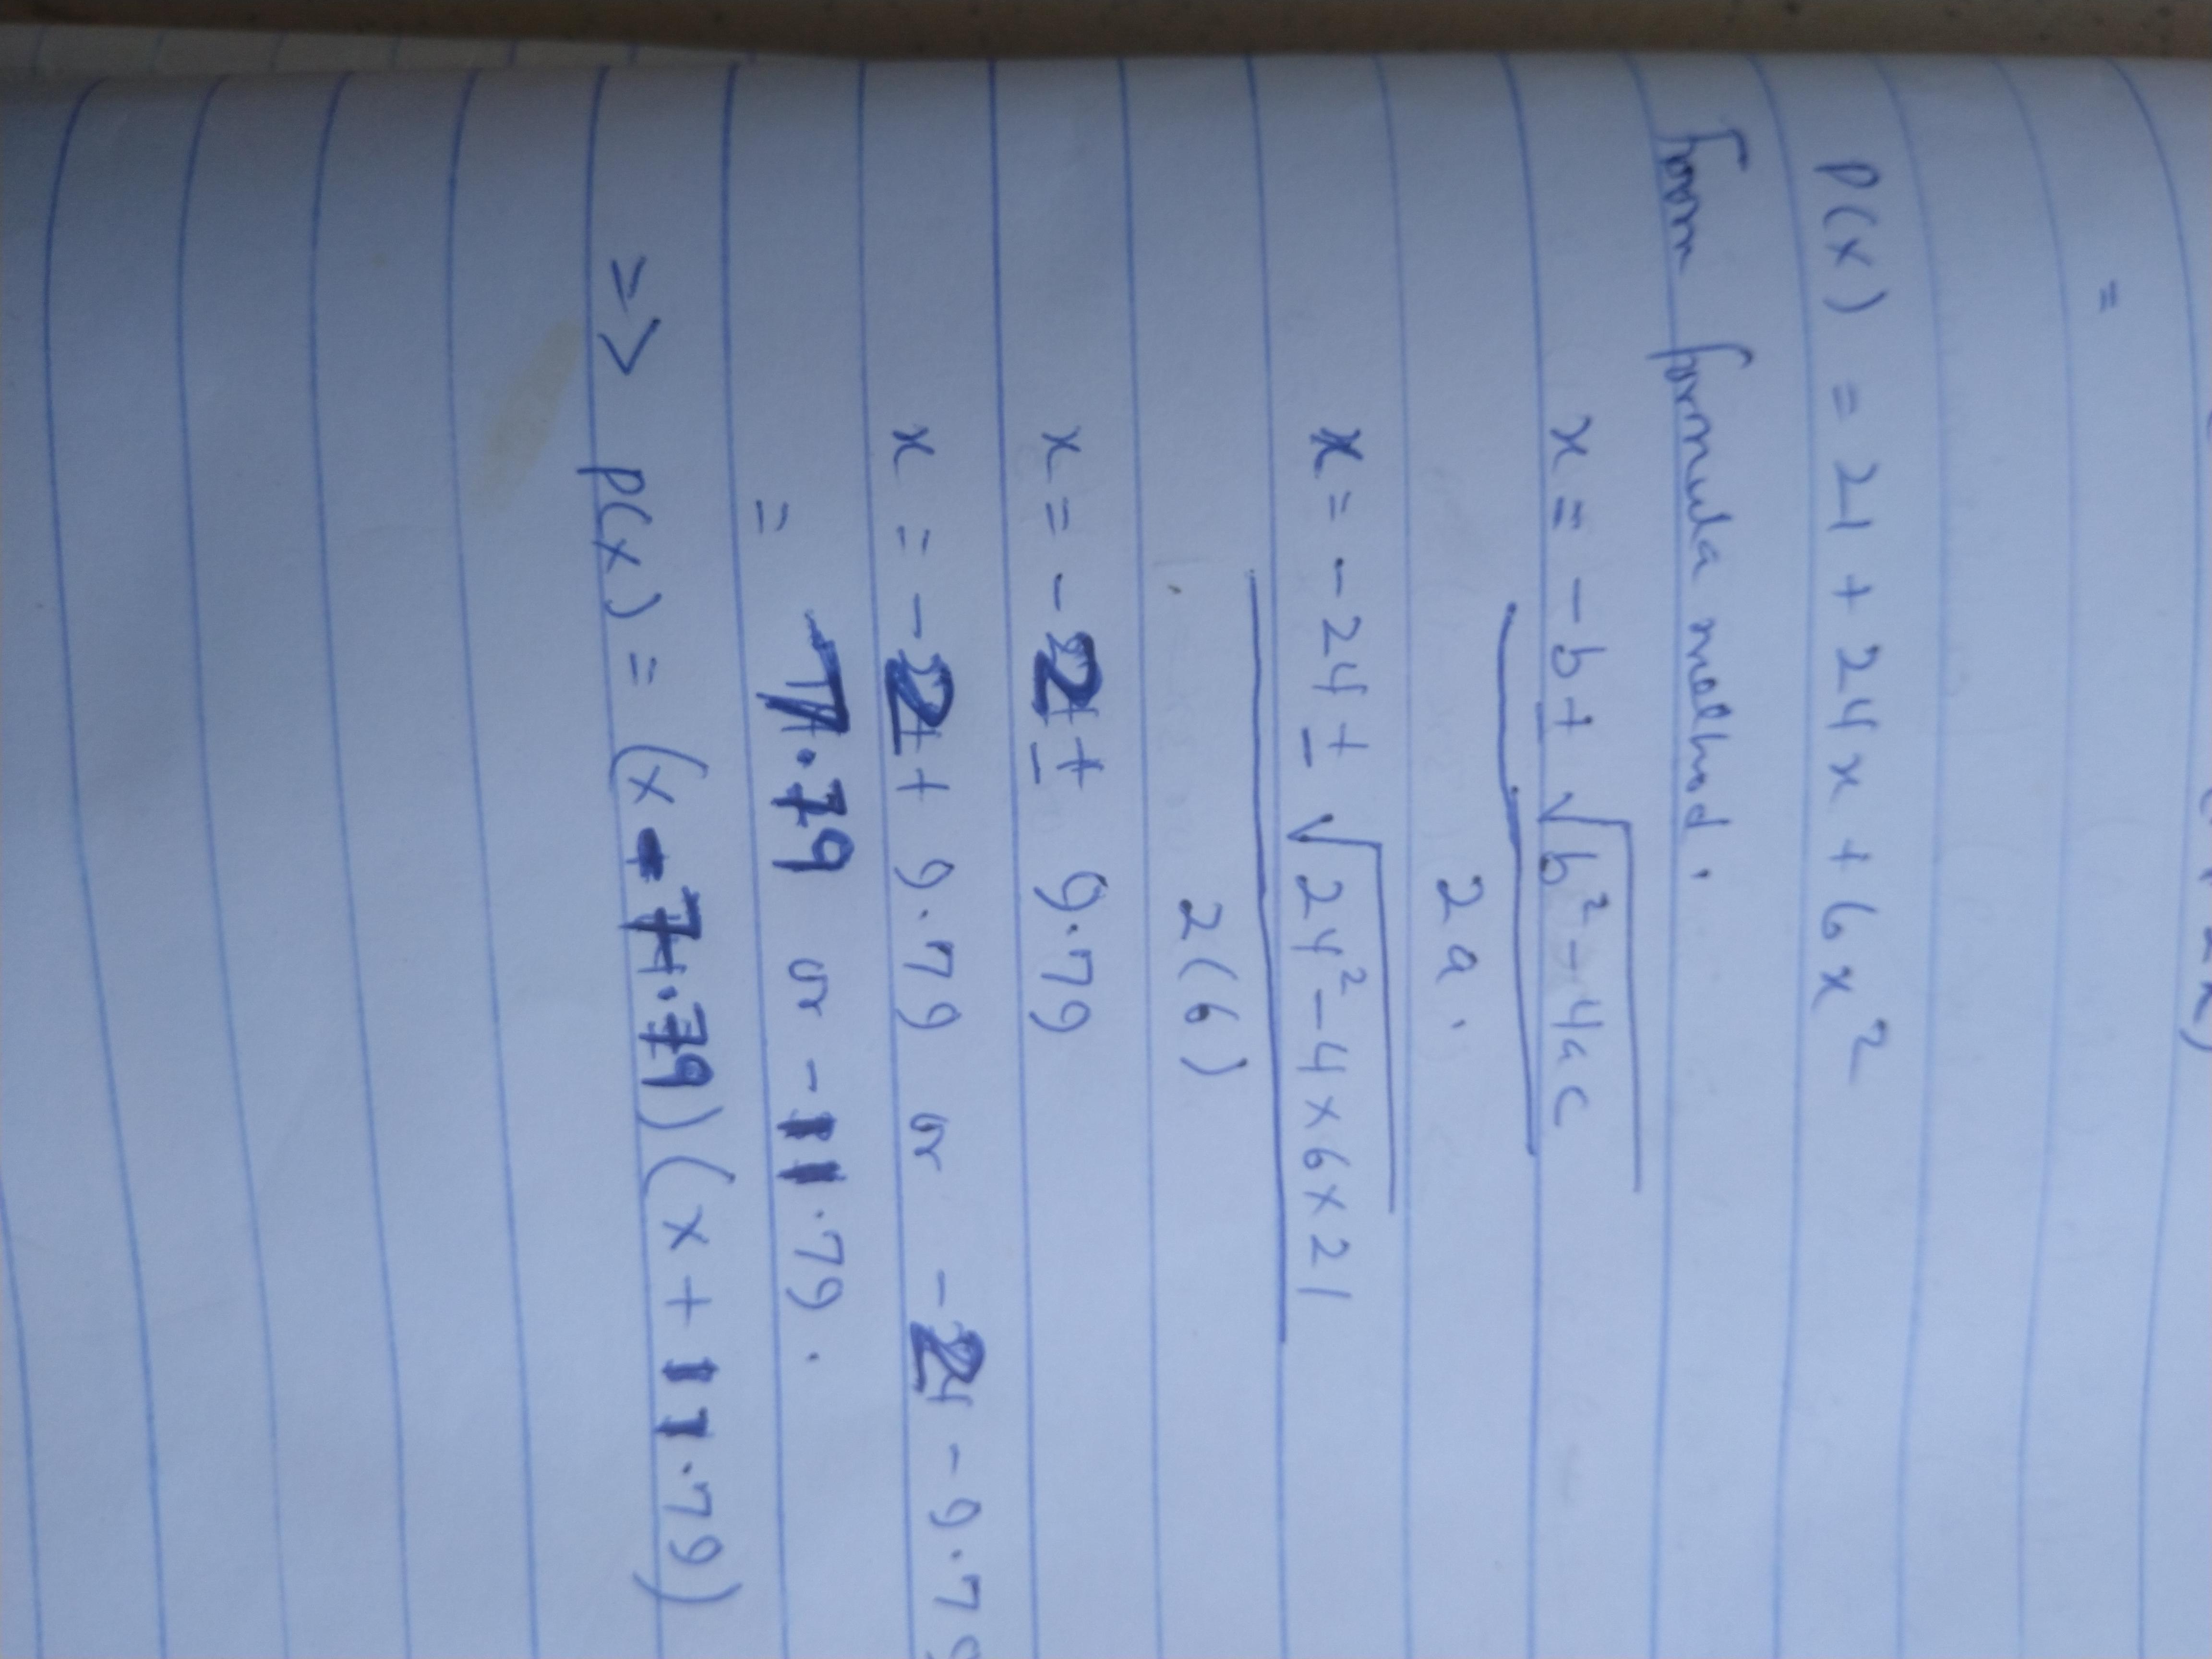 =
P(x) = 21 + 24x + 6x²
From formula method.
x = -b ± √b² - 4ac
2a.
x = -24 ± √24² - 4 x 6 x 21
2(6)
x = -2 ± 9.79
x = -2 + 9.79 or -2 - 9.79
= 7.79 or -11.79.
>> P(x) = (x - 7.79)(x + 11.79)